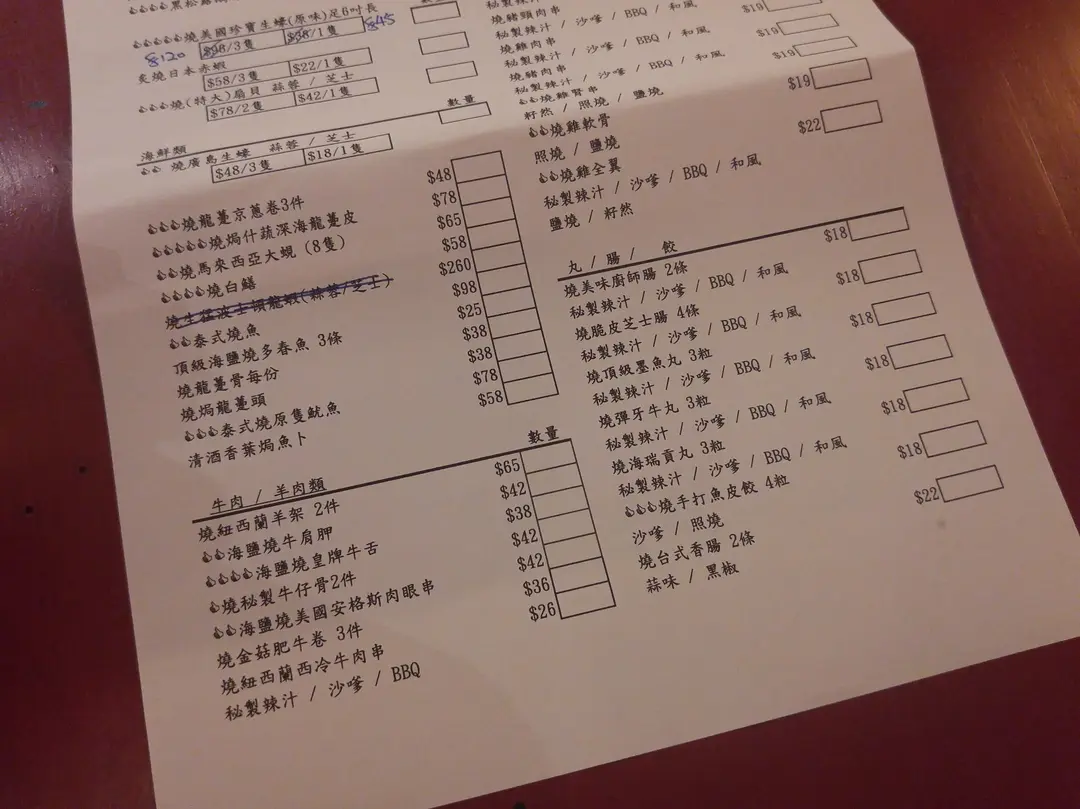 燒美國珍寶生蠔(原味)足6吋長
$98/3隻 $38/1隻
$120 $45
炙燒日本赤蝦
$58/3隻 $22/1隻
燒(特大)扇貝 蒜蓉 / 芝士
$78/2隻 $42/1隻
海鮮類 數量
燒廣島生蠔 蒜蓉 / 芝士
$48/3隻 $18/1隻
燒龍躉京蔥卷3件 $48
燒焗什蔬深海龍躉皮 $78
燒馬來西亞大蜆 (8隻) $65
燒白鱔 $58
燒生猛波士頓龍蝦(蒜蓉/芝士) $260
泰式燒魚 $98
頂級海鹽燒多春魚 3條 $25
燒龍躉骨每份 $38
燒焗龍躉頭 $38
泰式燒原隻魷魚 $78
清酒香葉焗魚卜 $58
牛肉 / 羊肉類 數量
燒紐西蘭羊架 2件 $65
海鹽燒牛肩胛 $42
海鹽燒皇牌牛舌 $38
燒秘製牛仔骨2件 $42
海鹽燒美國安格斯肉眼串 $42
燒金菇肥牛卷 3件 $36
燒紐西蘭西冷牛肉串 $26
秘製辣汁 / 沙嗲 / BBQ
燒豬頸肉串
秘製辣汁 / 沙嗲 / BBQ / 和風
燒雞肉串 $19
秘製辣汁 / 沙嗲 / BBQ / 和風
燒豬肉串 $19
秘製辣汁 / 沙嗲 / BBQ / 和風
燒雞腎串 $19
籽然 / 照燒 / 鹽燒
燒雞軟骨 $19
照燒 / 鹽燒
燒雞全翼 $22
秘製辣汁 / 沙嗲 / BBQ / 和風
鹽燒 / 籽然
丸 / 腸 / 餃
燒美味廚師腸 2條 $18
秘製辣汁 / 沙嗲 / BBQ / 和風
燒脆皮芝士腸 4條 $18
秘製辣汁 / 沙嗲 / BBQ / 和風
燒頂級墨魚丸 3粒 $18
秘製辣汁 / 沙嗲 / BBQ / 和風
燒彈牙牛丸 3粒 $18
秘製辣汁 / 沙嗲 / BBQ / 和風
燒海瑞貢丸 3粒 $18
秘製辣汁 / 沙嗲 / BBQ / 和風
燒手打魚皮餃 4粒 $18
沙嗲 / 照燒
燒台式香腸 2條 $22
蒜味 / 黑椒